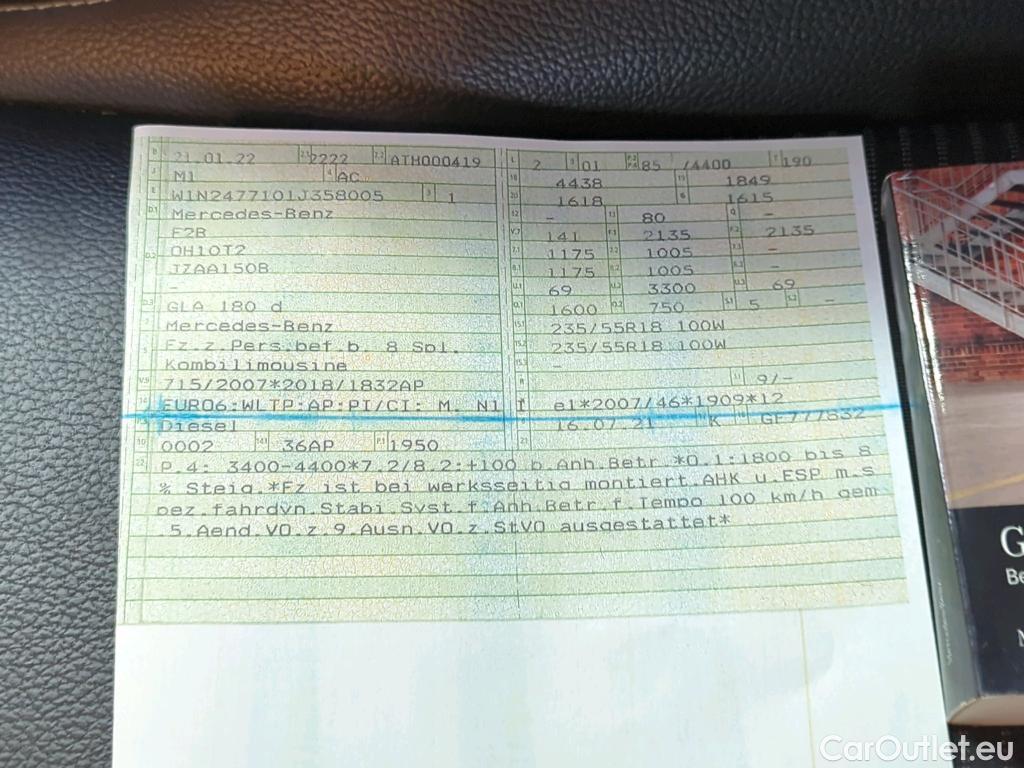 B 21.01.22 2.1 2222 2.2 ATH000419
J M1 4 AC
E W1N2477101J358005 3 1
D.1 Mercedes-Benz
F2B
D.2 OH10T2
JZAA150B
-
D.3 GLA 180 d
2 Mercedes-Benz
5 Fz.z.Pers.bef.b. 8 Spl.
Kombilimousine
V.9 715/2007*2018/1832AP
14 EURO6;WLTP;AP;PI/CI; M, N1 I
Diesel
10 0002 14.1 36AP P.1 1950
L 2 9 01 P.2 P.4 85 /4400 T 190
18 4438 19 1849
20 1618 G 1615
12 - 13 80 Q -
V.7 141 F.1 2135 F.2 2135
7.1 1175 7.2 1005 7.3 -
8.1 1175 8.2 1005 8.3 -
U.1 69 U.2 3300 U.3 69
O.1 1600 O.2 750 S.1 5 S.2 -
15.1 235/55R18 100W
15.2 235/55R18 100W
15.3 -
R 11 9/-
K e1*2007/46*1909*12
6 16.07.21 17 K 16 GF777832
21
22 P.4: 3400-4400*7.2/8.2:+100 b.Anh.Betr.*O.1:1800 bis 8
% Steig.*Fz ist bei werksseitig montiert.AHK u.ESP m.s
pez.fahrdyn.Stabi.Syst.f.Anh.Betr.f.Tempo 100 km/h gem
.5.Aend.VO.z.9.Ausn.VO.z.StVO ausgestattet*
G
Be
CarOutlet.eu